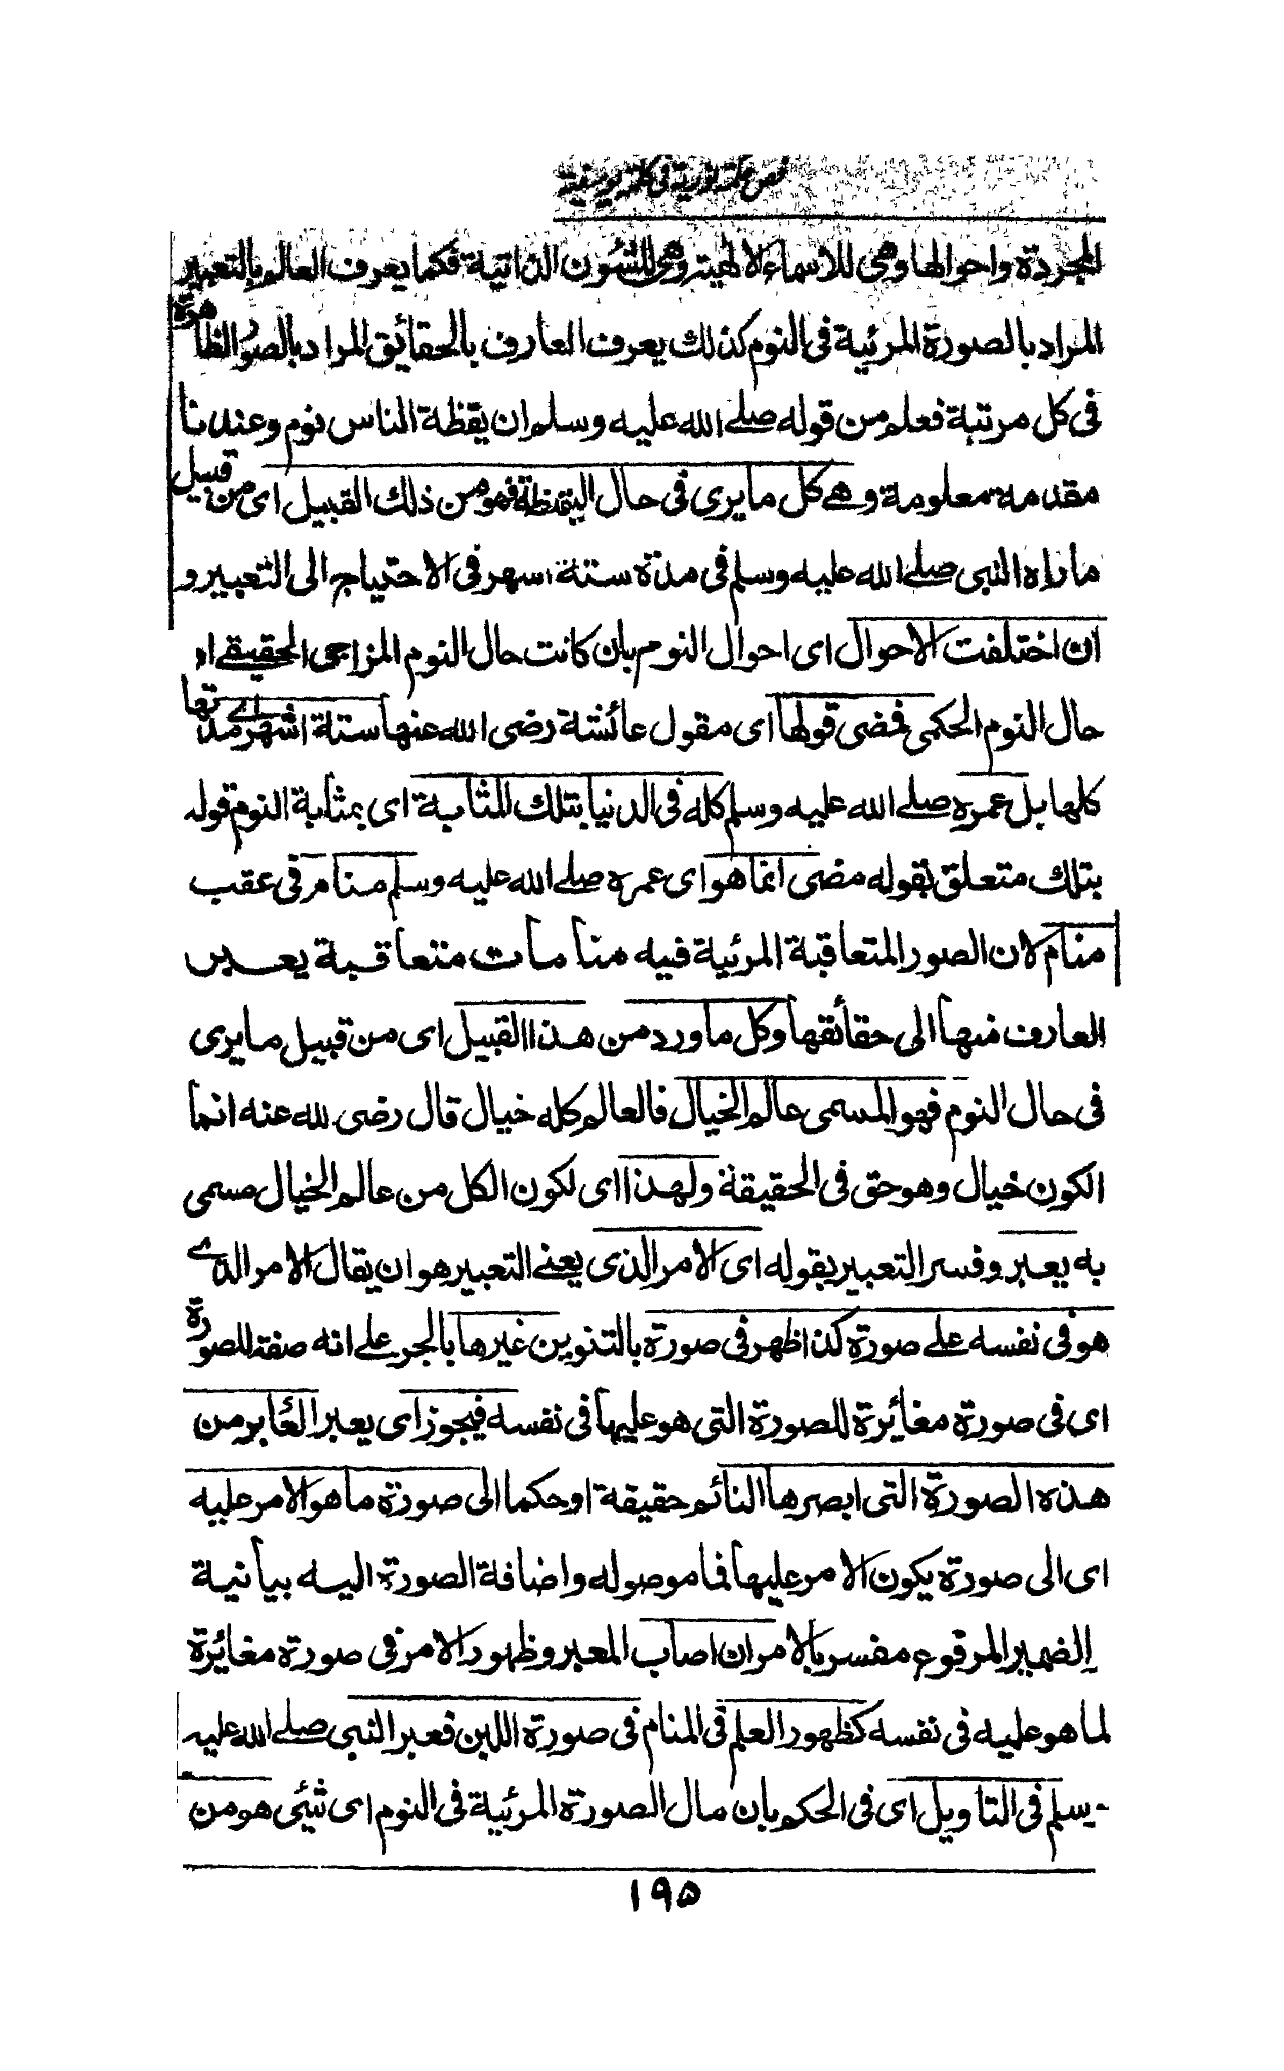 فص حكمة نورية فى كلمة يوسفية
المجردة واحوالها وهى للاسماء الالهية وهى للشئون الذاتية فكما يعرف العالم بالتعبير
المراد بالصورة المرئية فى النوم كذلك يعرف العارف بالحقائق المراد بالصور الظاهرة
فى كل مرتبة فعلم من قوله صلے الله عليه وسلم ان يقظة الناس نوم وعندنا
مقدمة معلومة وهے كل ما يرى فى حال اليقظة فهو من ذلك القبيل اى من قبيل
ما راه النبى صلے الله عليه وسلم فى مدة ستة اسهر فى الاحتياج الى التعبير و
ان اختلفت الاحوال اى احوال النوم بان كانت حال النوم المزاجى الحقيقے او
حال النوم الحكمى فمضى قولها اى مقول عائشة رضى الله عنها ستة اشهر اے مدتها
كلها بل عمره صلے الله عليه وسلم كله فى الدنيا بتلك المثابة اى بمثابة النوم قوله
بتلك متعلق بقوله مضى انما هو اى عمره صلے الله عليه وسلم منام فى عقب
منام لان الصور المتعاقبة المرئية فيه منامات متعاقبة يعبر
العارف منها الى حقائقها وكل ما ورد من هذا القبيل اى من قبيل ما يرى
فى حال النوم فهو المسمى عالم الخيال فالعالم كله خيال قال رضى لله عنه انما
الكون خيال وهو حق فى الحقيقة ولهذا اى لكون الكل من عالم الخيال مسمى
به يعبر وفسر التعبير بقوله اى الامر الذى يعنے التعبير هو ان يقال الامر الذے
هو فى نفسه علے صورة كذا ظهر فى صورة بالتنوين غيرها بالجر علے انه صفة للصورة
اى فى صورة مغائرة للصورة التى هو عليها فى نفسه فيجوز اى يعبر العابر من
هذه الصورة التى ابصرها النائم حقيقة او حكما الى صورة ما هو الامر عليه
اى الى صورة يكون الامر عليها فما موصوله واضافة الصورة اليه بيانية
الضمير المرفوع مفسر بالامر ان اصاب المعبر وظهور الامر فى صورة مغائرة
لما هو عليه فى نفسه كظهور العلم فى المنام فى صورة اللبن فعبر النبى صلے الله عليه
- يسلم فى التاويل اى فى الحكم بان مال الصورة المرئية فى النوم اى شئى هو من
۱۹۵